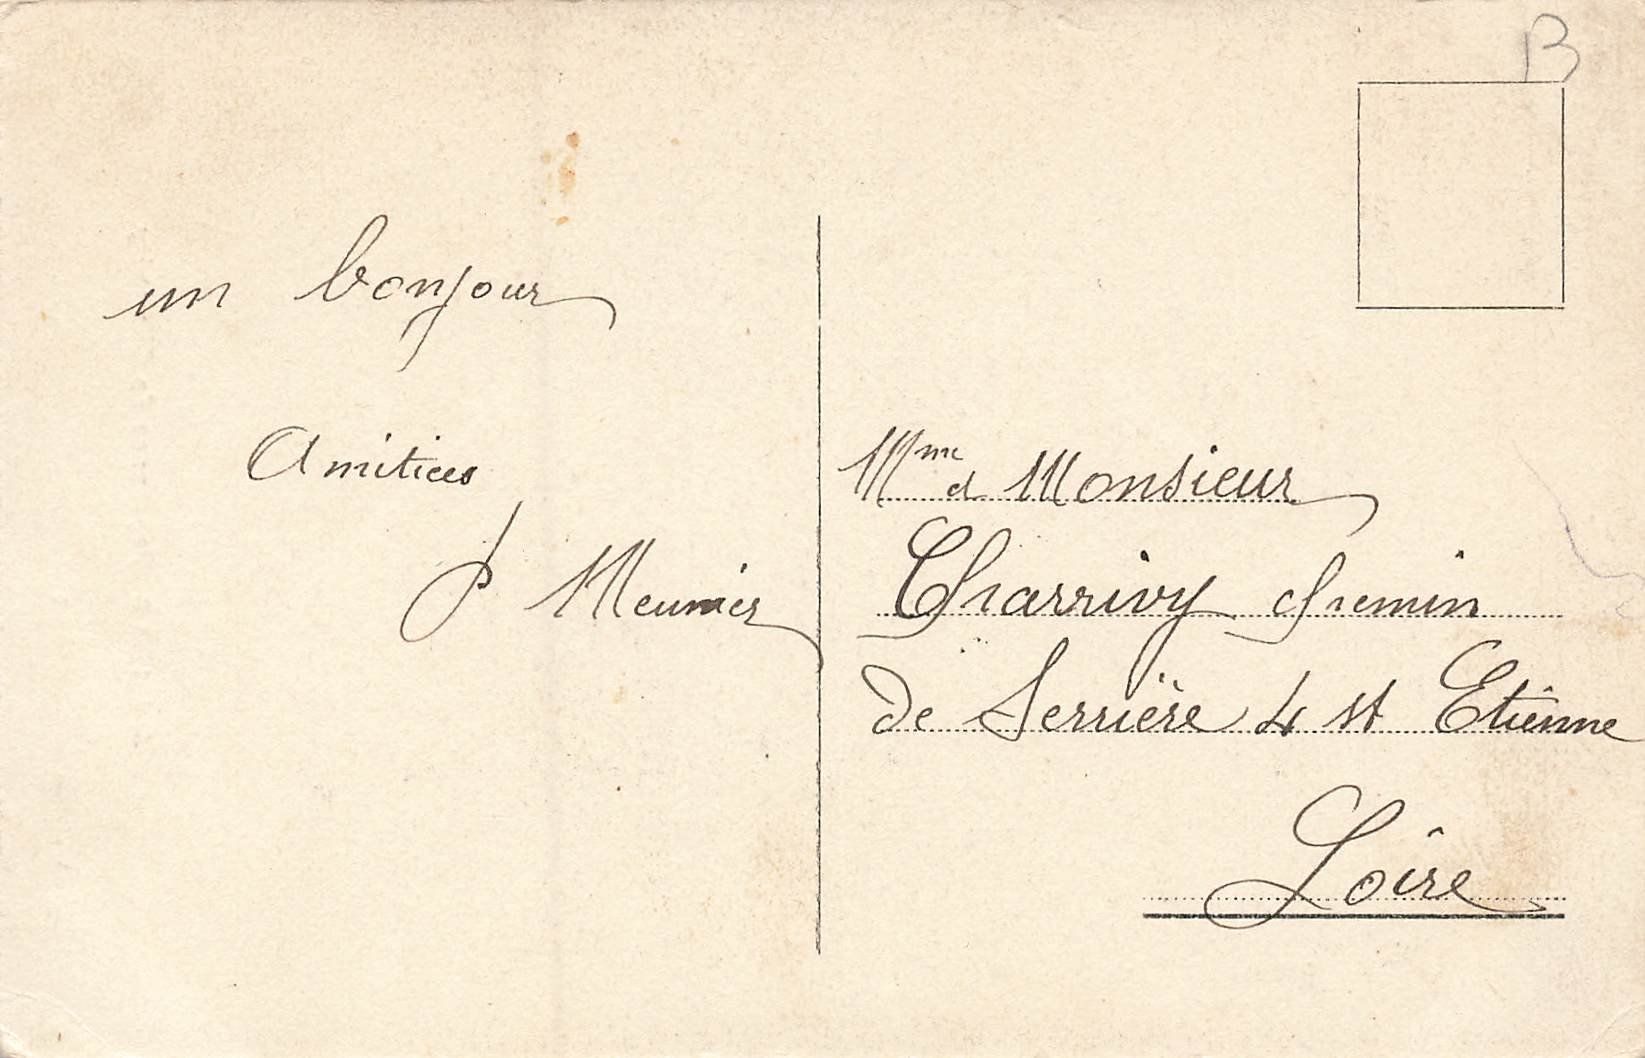 un bonjour
Amitiees
P Meunier
B
Mme et Monsieur
Charrivy chemin
de Serrière 4 st Etienne
Loire